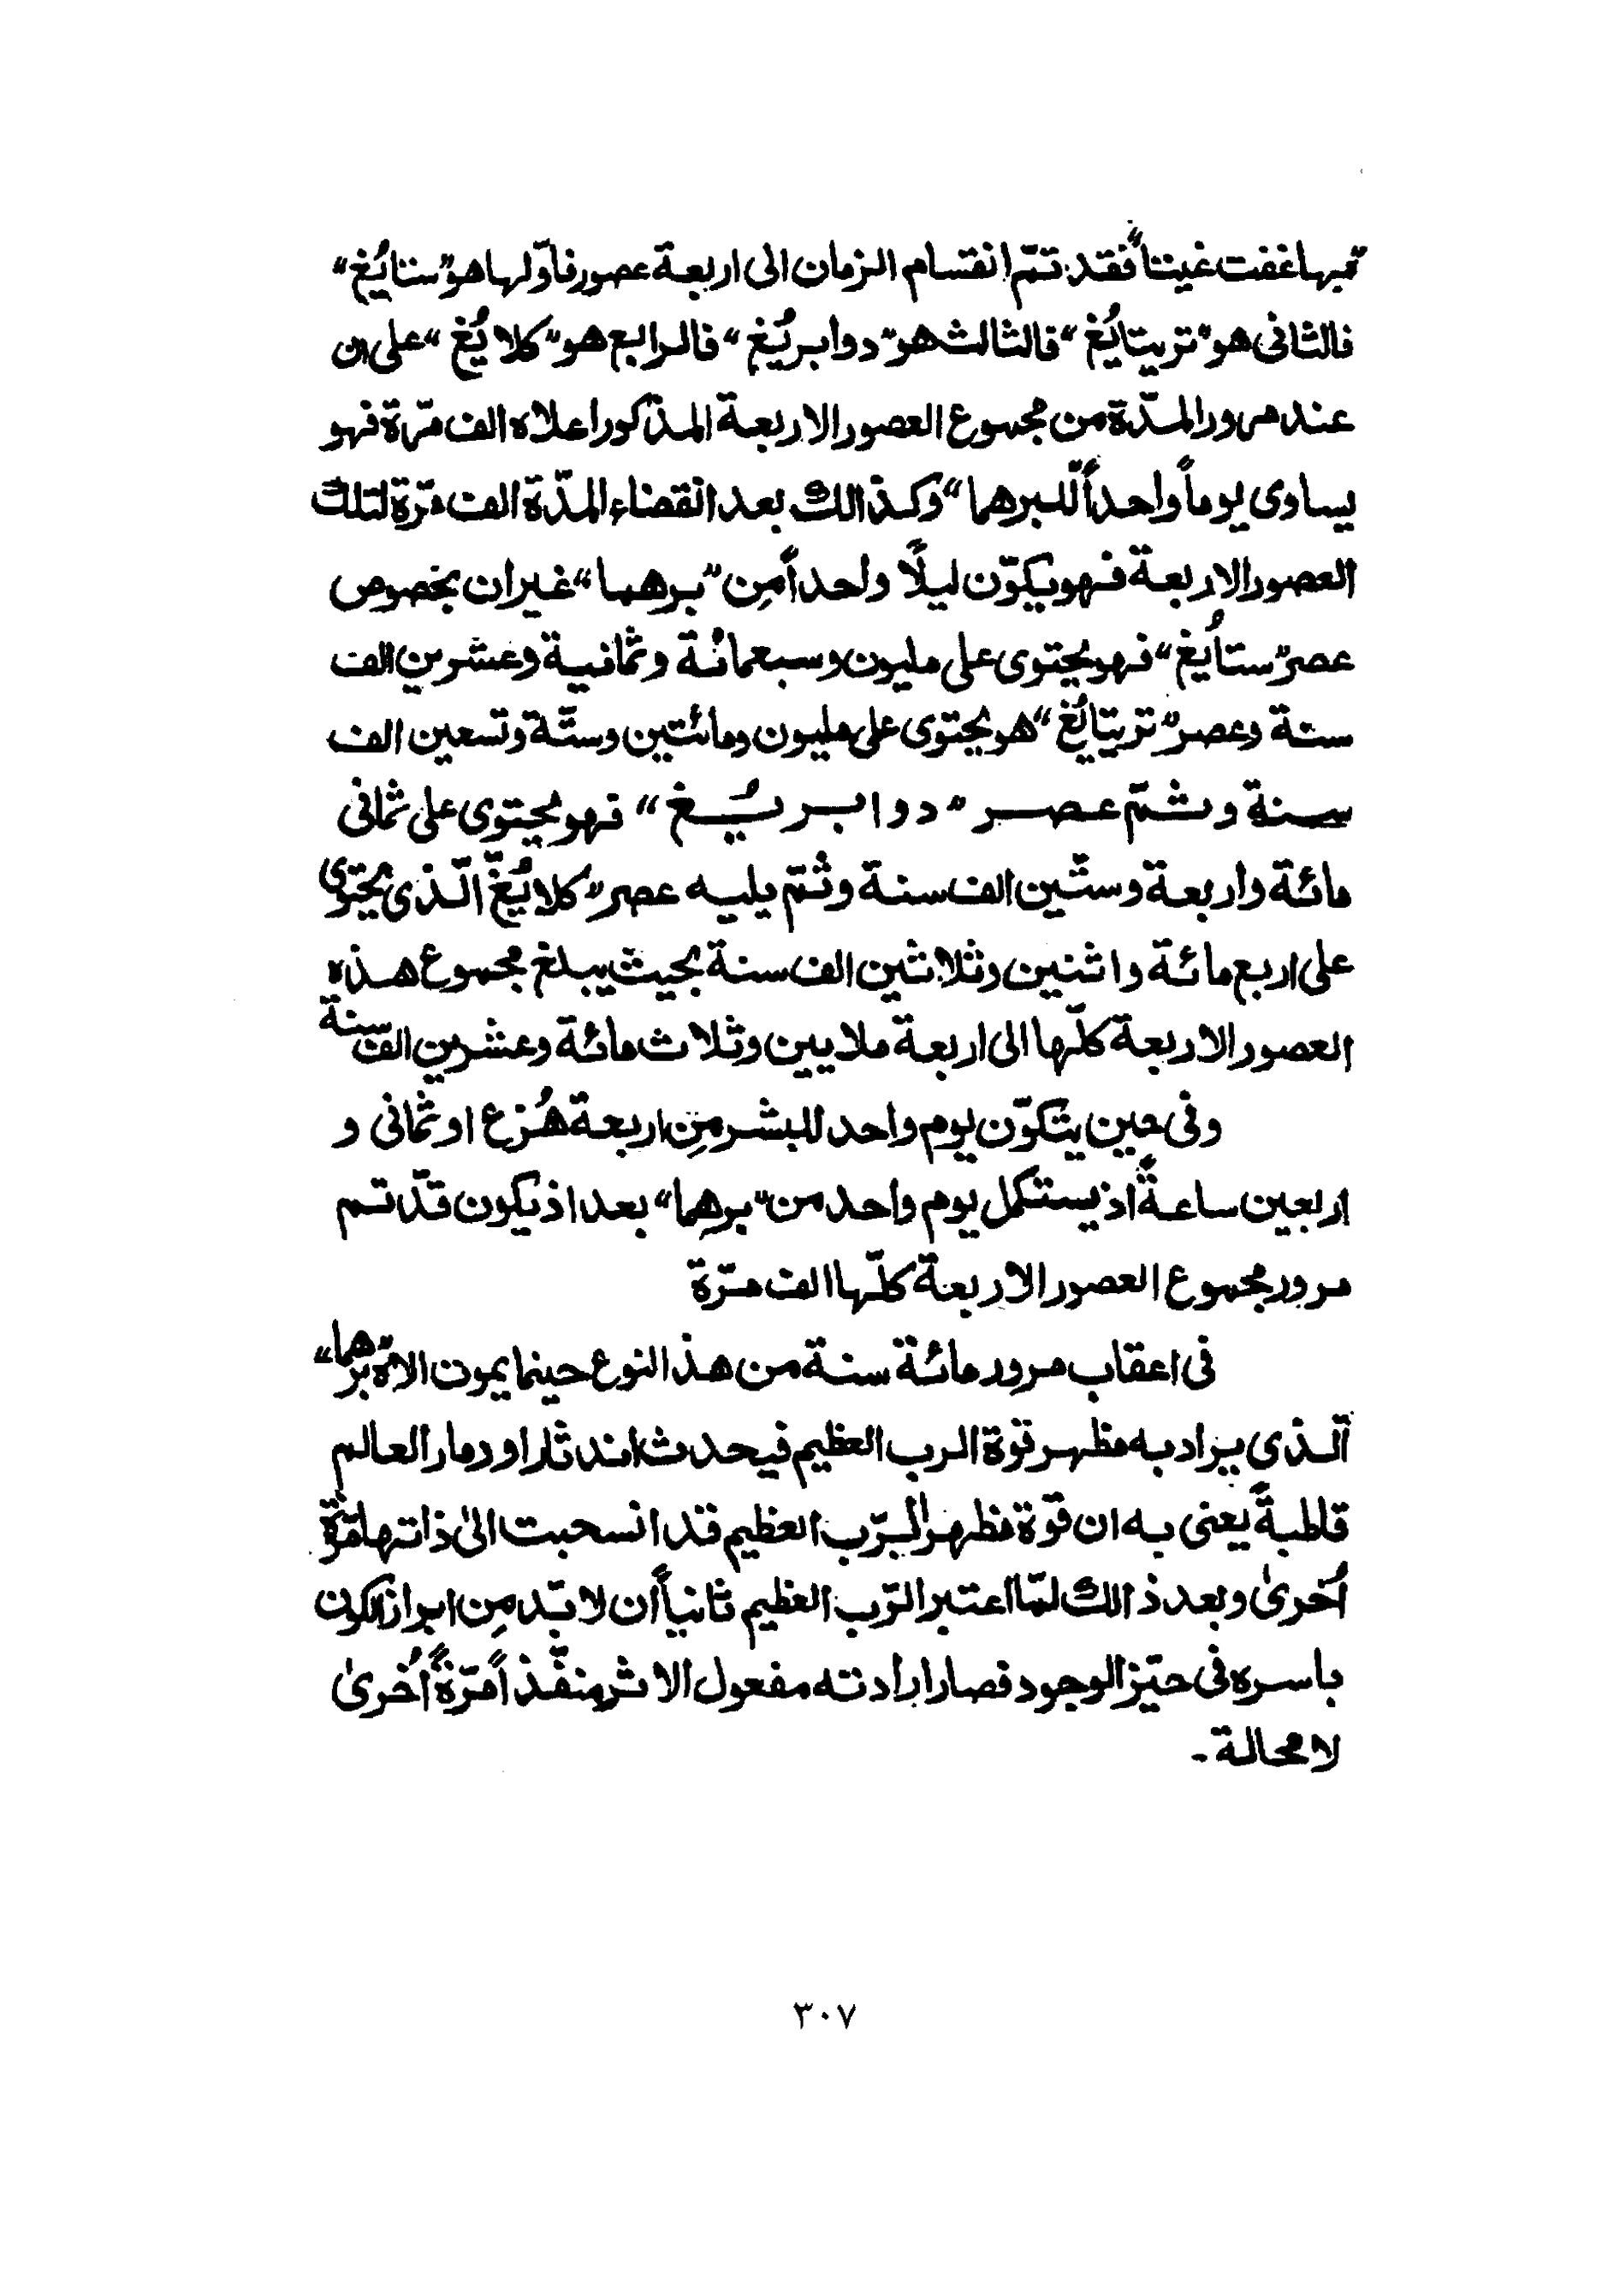 "بهاغفت غيتا" فقد تمّ انقسام الزمان الى اربعة عصور فاوّلها هو "ستايُغ"
فالثانى هو "تريتايُغ" فالثالث هو "دوابريُغ" فالرابع هو "كلايُغ" على ان
عند مرور المدّة من مجموع العصور الاربعة المذكور اعلاه الف مرّة فهو
يساوى يوماً واحداً "للبرهما" وكذالك بعد انقضاء المدّة الف مرّة لتلك
العصور الاربعة فهو يكوّن ليلًا واحداً مِن "برهما" غير ان بخصوص
عصر "ستايُغ" فهو يحتوى على مليون وسبعمائة وثمانية وعشرين الف
سنة وعصر "تريتايُغ" هو يحتوى على مليون ومائتين وستّة وتسعين الف
سنة وثمّ عصر "دوابريُغ" فهو يحتوى على ثمانى
مائة واربعة وستّين الف سنة وثمّ يليه عصر "كلايُغ" الّذى يحتوى
على اربع مائة واثنين وثلاثين الف سنة بحيث يبلغ مجموع هذه
العصور الاربعة كلّها الى اربعة ملايين وثلاث مائة وعشرين الف سنة
وفى حين يتكوّن يوم واحد للبشر مِن اربعة هُزع او ثمانى و
اربعين ساعةً اذ يستكمل يوم واحد من "برهما" بعد اذ يكون قد تم
مرور مجموع العصور الاربعة كلّها الف مرّة
فى اعقاب مرور مائة سنة من هذا النوع حينما يموت الاله "برهما"
الّذى يراد به مظهر قوّة الرب العظيم فيحدث اندثار او دمار العالم
قاطبةً يعنى به ان قوّة مظهر الرّب العظيم قد انسحبت الىٰ ذاتها مرّة
أُخرىٰ وبعد ذالك لمّا اعتبر الرّب العظيم ثانياً أن لا بدّ مِن ابراز الكون
باسره فى حيّز الوجود فصار ارادته مفعول الاثر منفّذاً مرّةً أُخرىٰ
لا محالة -
٣٠٧